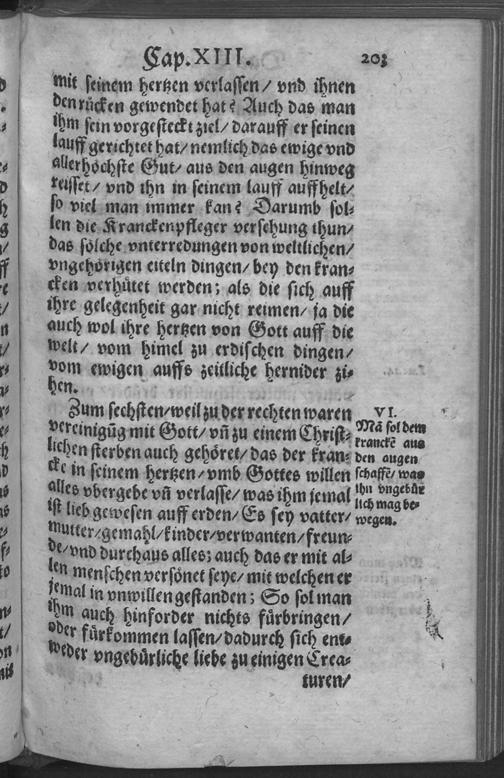 Cap. XIII. 203
mit seinem hertzen verlassen/ vnd ihnen
den rücken gewendet hat? Auch das man
ihm sein vorgesteckt ziel/ darauff er seinen
lauff gerichtet hat/ nemlich das ewige vnd
allerhöchste Gut/ aus den augen hinweg
reisset/ vnd ihn in seinem lauff auffhelt/
so viel man immer kan? Darumb sol-
len die Kranckenpfleger versehung thun/
das sölche vnterredungen von weltlichen/
vngehörigen eiteln dingen/ bey den kran-
cken verhütet werden; als die sich auff
ihre gelegenheit gar nicht reimen/ ja die
auch wol ihre hertzen von Gott auff die
welt/ vom himel zu erdischen dingen/
vom ewigen auffs zeitliche hernider zi-
hen.
Zum sechsten/ weil zu der rechten waren
vereinigũg mit Gott/ vñ zu einem Christ-
lichen sterben auch gehöret/ das der kran-
cke in seinem hertzen/ vmb Gottes willen
alles vbergebe vñ verlasse/ was ihm jemal
ist lieb gewesen auff erden/ Es sey vatter/
mutter/ gemahl/ kinder/ verwanten/ freun-
de/ vnd durchaus alles; auch das er mit al-
len menschen versönet seye/ mit welchen er
jemal in vnwillen gestanden; So sol man
ihm auch hinforder nichts fürbringen/
oder fürkommen lassen/ dadurch sich ent-
weder vngebürliche liebe zu einigen Crea-
turen/
VI.
Mã sol dem
kranckẽ aus
den augen
schaffẽ/ was
ihn vngebür
lich mag be-
wegen.